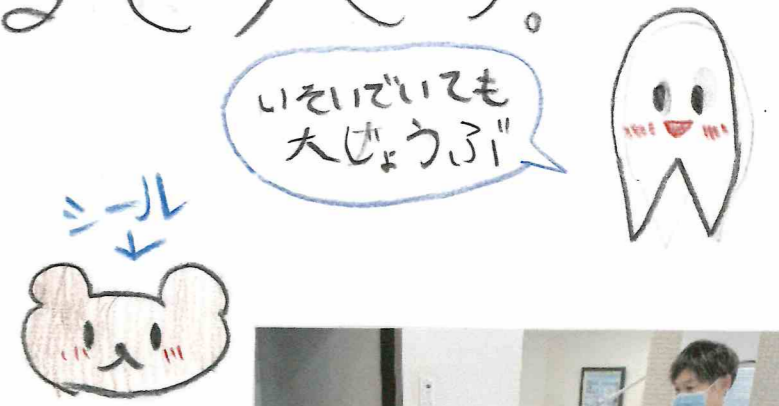 いそいでいても
大じょうぶ
シール